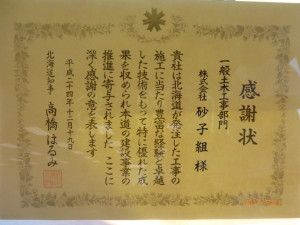 感謝状
一般土木工事部門
株式会社 砂子組 様
貴社は北海道が発注した工事の
施工に当たり豊富な経験と卓越
した技術をもって特に優れた成
果を収められ本道の建設事業の
推進に寄与されました ここに
深く感謝の意を表します
平成二十四年十二月十九日
北海道知事 高橋はるみ